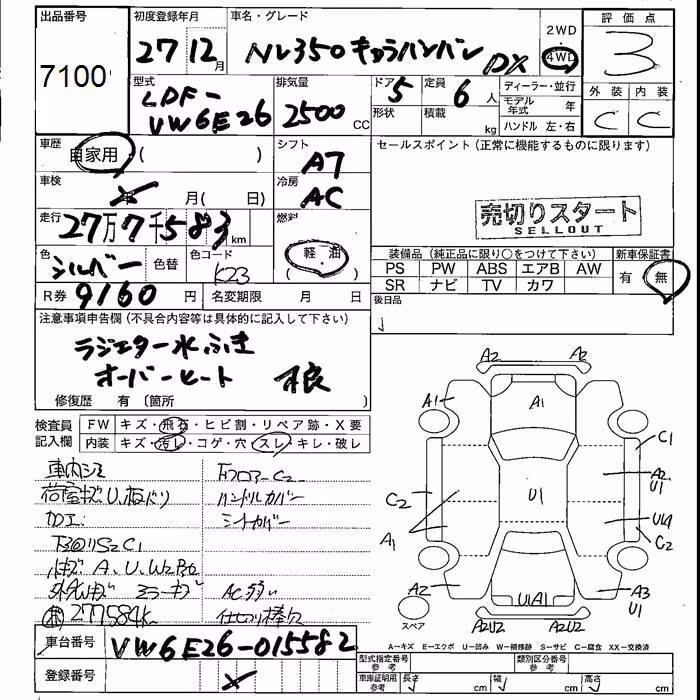 出品番号 初度登録年月 車名・グレード 2WD 評価点
7100 27 12月 NV350キャラバンバン DX 4WD 3
型式 排気量 ドア 定員 ディーラー・並行 外装 内装
LDF-VW6E26 2500 CC 5 6人 モデル年式 年 C C
形状 積載 kg ハンドル 左・右
車歴 自家用 ( ) シフト A7 セールスポイント(正常に機能するものに限ります)
車検 月( 日) 冷房 AC
売切りスタート
SELLOUT
走行 27万7千583km 燃料 軽・油
色 シルバー 色替 色コード K23 ( ・ )
装備品(純正品に限り○をつけて下さい) 新車保証書
PS PW ABS エアB AW 有 無
SR ナビ TV カワ
R券 9160円 名変期限 月 日 後日品
注意事項申告欄(不具合内容等は具体的に記入して下さい)
ラジエター水ふき
オーバーヒート 不良
修復歴 有〔箇所 〕
検査員記入欄 FW キズ・飛石・ヒビ割・リペア跡・X要
内装 キズ・汚レ・コゲ・穴・スレ・キレ・破レ
車内シミ 下フロアーC2
荷室キズU、
ハンドルカバー
加工 シートカバー
小キズA、U、W2
ミラーキズ AC弱い
277584k 仕切り棒欠
A2 A2
A1 A1 C1
A2 U1
C2 U1 U4 C2
A1
A2 U1A1 A3 U1
スペア A2U2 A2U2
A-キズ E-エクボ U-凹み W-補修跡 S-サビ C-腐食 XX-交換済
車台番号 VW6E26-015582
登録番号
型式指定番号 参考 類別区分番号 参考
車庫証明用 参考 長さ cm 幅 cm 高さ cm